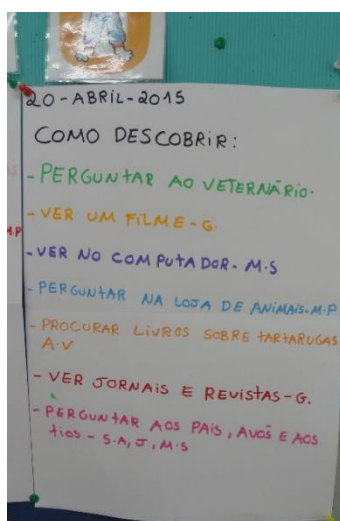 20-ABRIL-2015
COMO DESCOBRIR:
- PERGUNTAR AO VETERNÁRIO.
- VER UM FILME - G.
- VER NO COMPUTADOR - M.S
- PERGUNTAR NA LOJA DE ANIMAIS. M.P
- PROCURAR LIVROS SOBRE TARTARUGAS
A.V
- VER JORNAIS E REVISTAS - G.
- PERGUNTAR AOS PAIS, AVÓS E AOS
TIOS - S.A, J, M.S